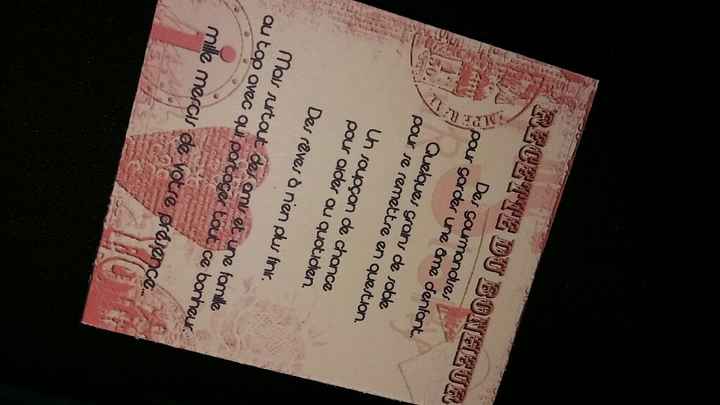 RECETTE DU BONHEUR
Des gourmandises
pour garder une âme d'enfant,
Quelques grains de sable
pour se remettre en question.
Un soupçon de chance
pour aider au quotidien.
Des rêves à n'en plus finir.
Mais surtout des amis et une famille
au top avec qui partager tout ce bonheur.
mille mercis de votre présence...